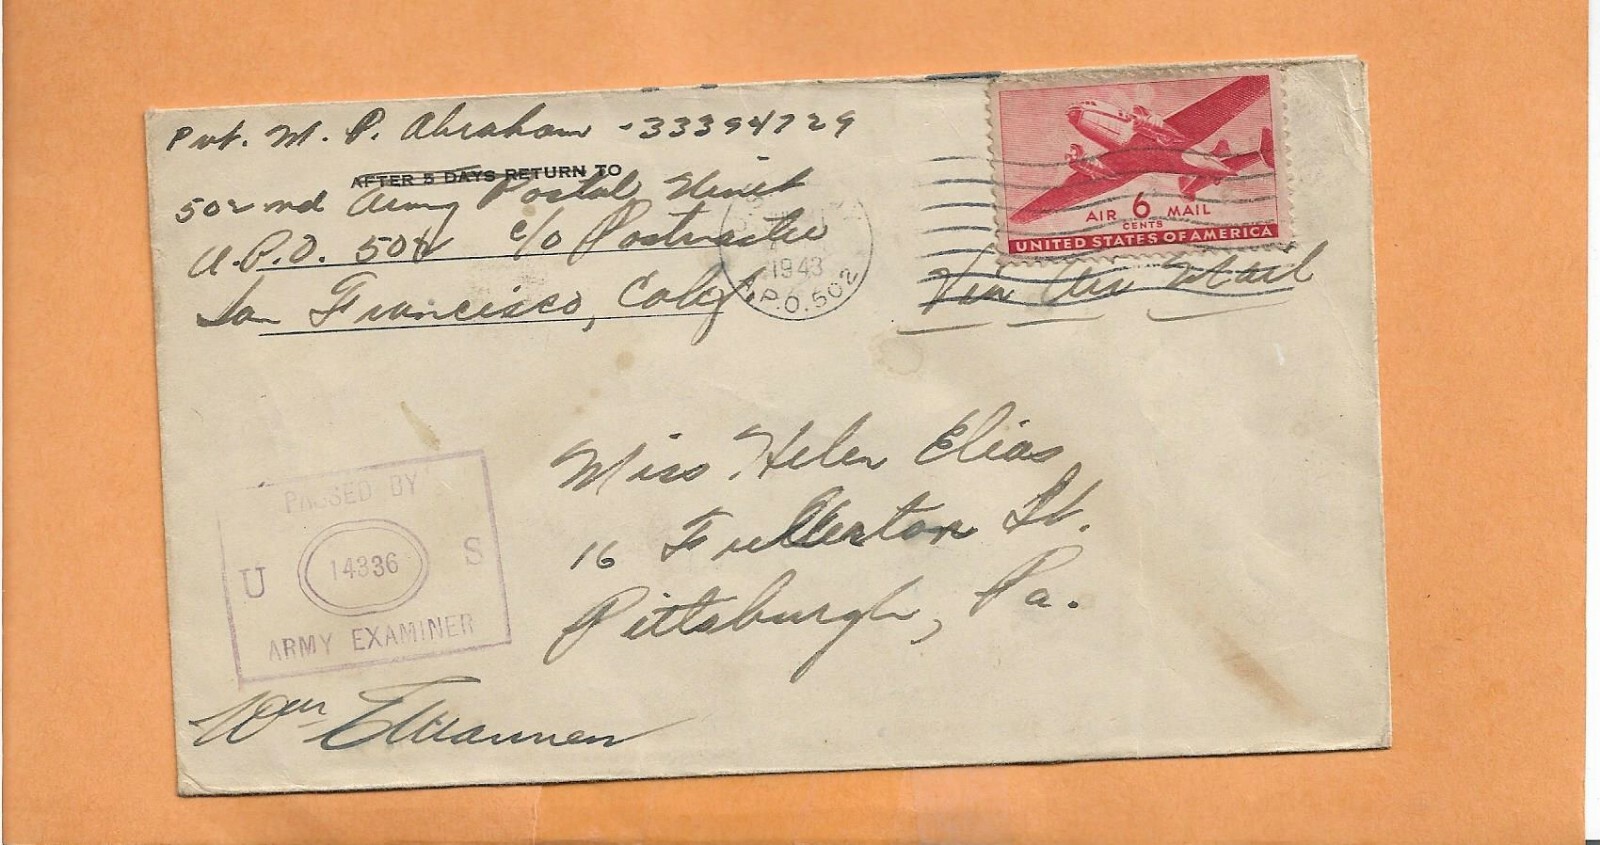 Pvt. M. P. Abraham - 33394729
AFTER 5 DAYS RETURN TO
502nd Army Postal Unit
A.P.O. 502 c/o Postmaster
San Francisco, Calif.
1943
A.P.O. 502
AIR 6 MAIL
CENTS
UNITED STATES OF AMERICA
Via Air Mail
Miss Helen Elias
16 Fullerton St.
Pittsburgh, Pa.
PASSED BY
U 14336 S
ARMY EXAMINER
Wm